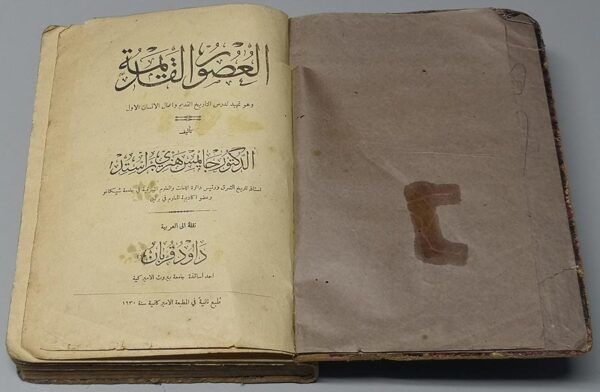 العُصُور القَديمة
وهو تمهيد لدرس التاريخ القديم واعمال الانسان الاول
تأليف
الدكتور جايمس هنري براستد
استاذ تاريخ الشرق ورئيس دائرة اللغات والعلوم الشرقية في جامعة شيكاغو
وعضو اكاديمية العلوم في برلين
نقله الى العربية
داود قربان
احد اساتذة جامعة بيروت الاميركية
طُبع ثانيةً في المطبعة الاميركانية سنة ١٩٣٠